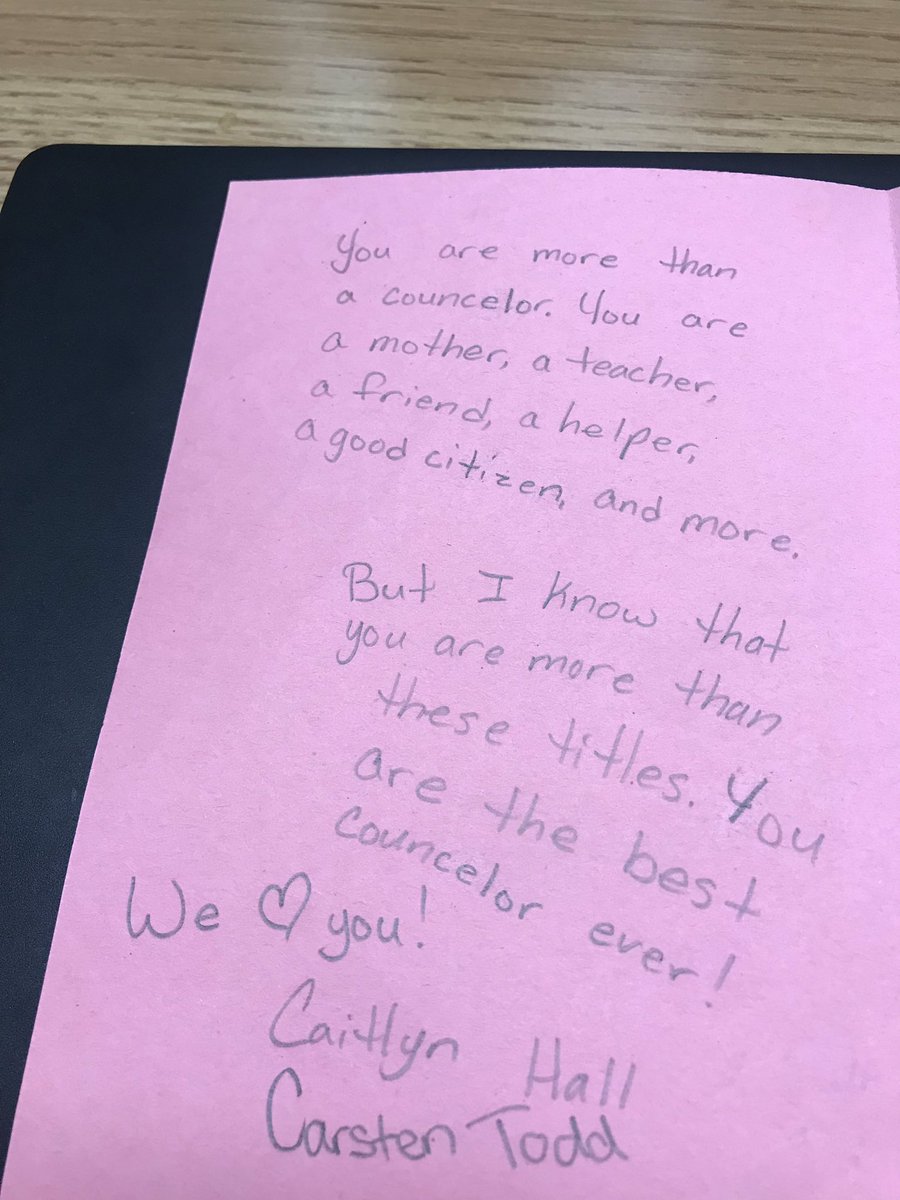 You are more than
a councelor. You are
a mother, a teacher,
a friend, a helper,
a good citizen, and more.
But I know that
you are more than
these titles. You
are the best
councelor ever!
We ♡ you!
Caitlyn Hall
Carsten Todd